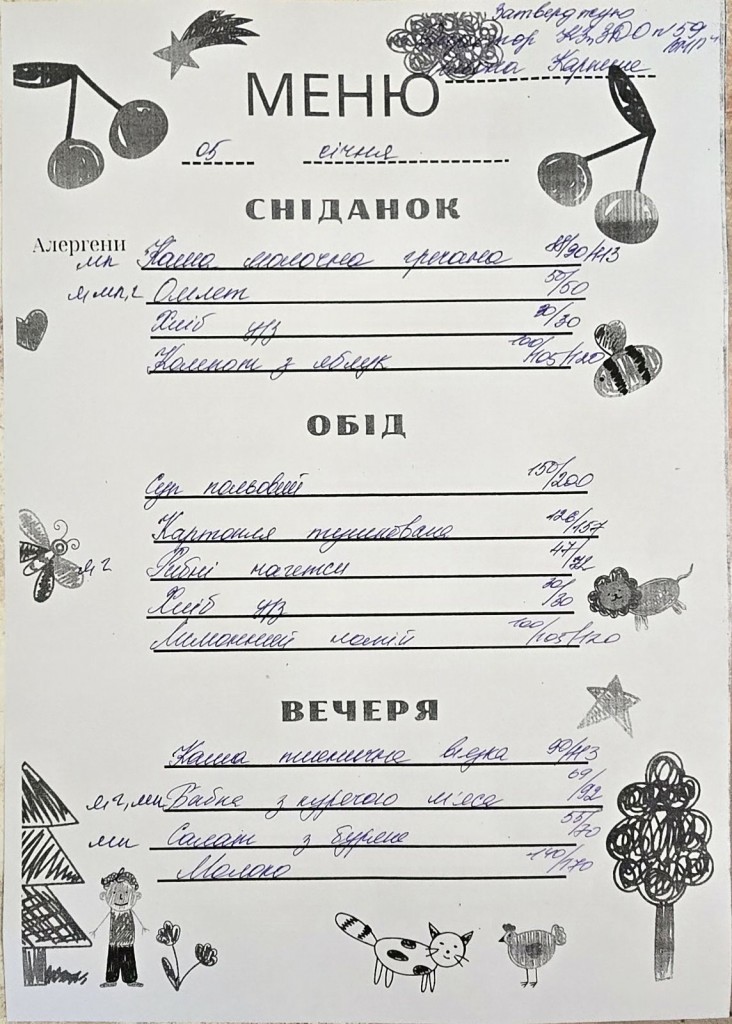 Затверджую
Директор КЗ ЗДО №59
МЕНЮ
05 січня
СНІДАНОК
Алергени
мп Каша молочна гречана /90/113
я, мп, г Омлет 50/50
Хліб ц/з 30/30
Компот з яблук 100/105/120
ОБІД
Суп польовий 150/200
Картопля тушкована 126/157
я, г Рибні нагетси 47/
Хліб ц/з 30/30
Лимонний напій 100/105/120
ВЕЧЕРЯ
Каша пшенична в'язка 90/113
я, г, мп Бабка з курячого м'яса 69/92
мп Салат з буряка 55/70
Молоко 140/170